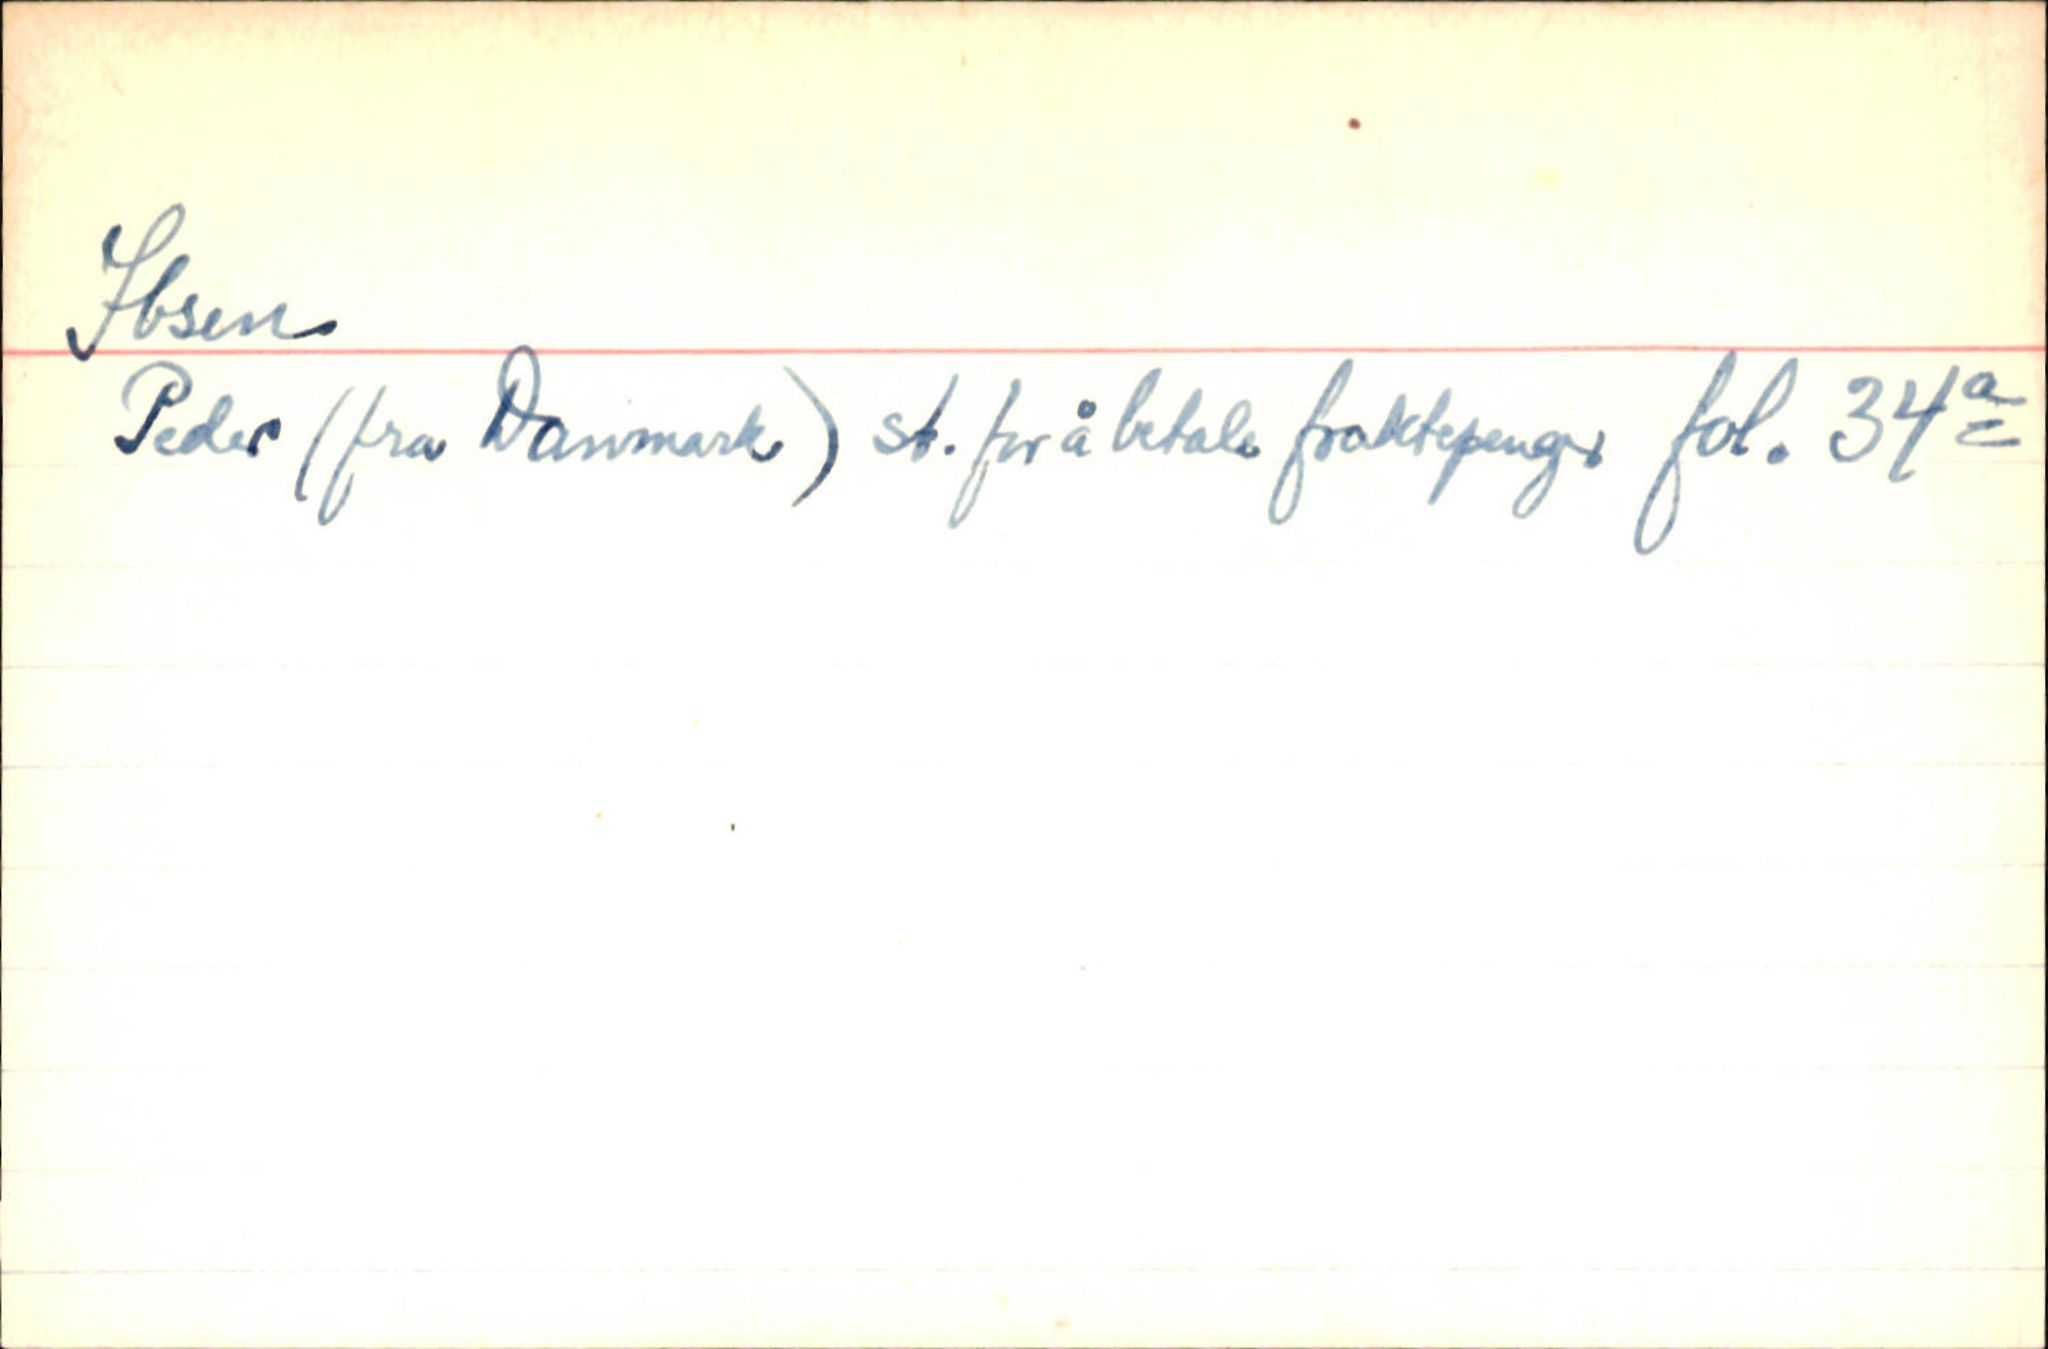 Ibsen
Peder (fra Danmark) st. for å betale fraktepenger fol. 34a